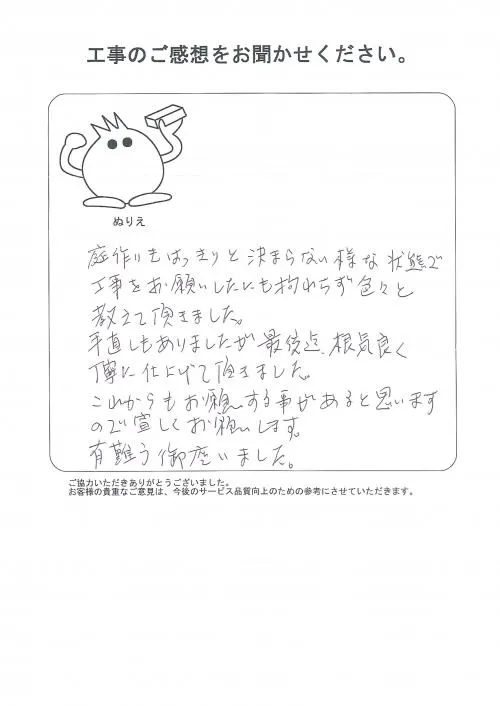 工事のご感想をお聞かせください。
ぬりえ
庭作りをはっきりと決まらない様な状態で
工事をお願いしたにも拘わらず色々と
教えて頂きました。
手直しもありましたが最後迄、根気良く
丁寧に仕上げて頂きました。
これからもお願いする事があると思います
ので宜しくお願いします。
有難う御座いました。
ご協力いただきありがとうございました。
お客様の貴重なご意見は、今後のサービス品質向上のための参考にさせていただきます。